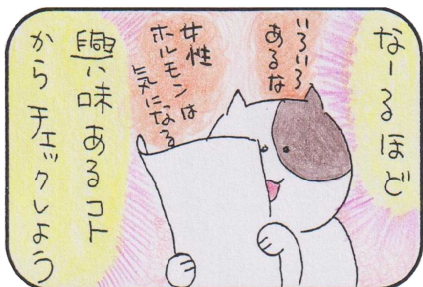 なーるほど
いろいろ
あるな
女性
ホルモンは
気になる
興味あるコト
からチェックしよう